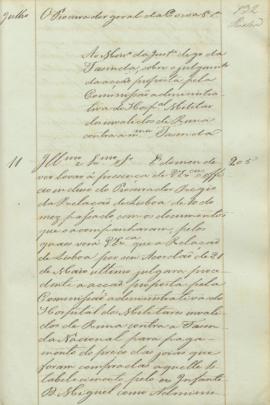 Julho O Procurador geral da Coroa &ª
Ao Minº da Justª
Fazenda, sobre o julgamento
da acção proposta pela
Commissão administra-
tiva do Hospal Militar
de invalidos de Runa
contra a mma Fazenda
11 Illmo e Exmo Sr.
ver levar á presença de V. Exª o offº
incluso do Procurador Regio
da Relação de Lisboa de 10 do
mez passado com os documentos
que o acompanharam, pelos
quaes verá V. Exª que a Relação
de Lisboa por seu Acordão de 21
de Maio ultimo julgara proce-
dente a acção proposta pela
Commissão administrativa do
Hospital de Militares invali-
dos de Runa contra a Fazen-
da Nacional para paga-
mento do preço das joias que
foram compradas aquelle es-
tabelecimento pelo sr Infante
D. Miguel como